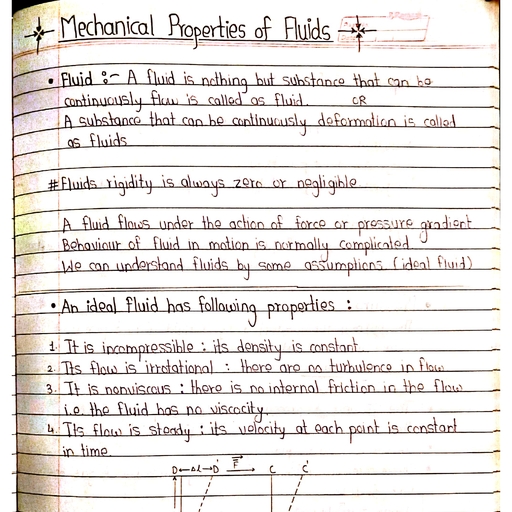 Mechanical Properties of Fluids
• Fluid :- A fluid is nothing but substance that can be
continuously flow is called as fluid. OR
A substance that can be continuously deformation is called
as fluids
#Fluids rigidity is always zero or negligible
A fluid flows under the action of force or pressure gradient
Behaviour of fluid in motion is normally complicated
We can understand fluids by some assumptions (ideal fluid)
• An ideal fluid has following properties :
1. It is incompressible : its density is constant
2. Its flow is irrotational : there are no turbulence in flow
3. It is nonviscous : there is no internal friction in the flow
i.e. the fluid has no viscocity.
4. Its flow is steady : its velocity at each point is constant
in time
D←Δl→D' F→ C C'